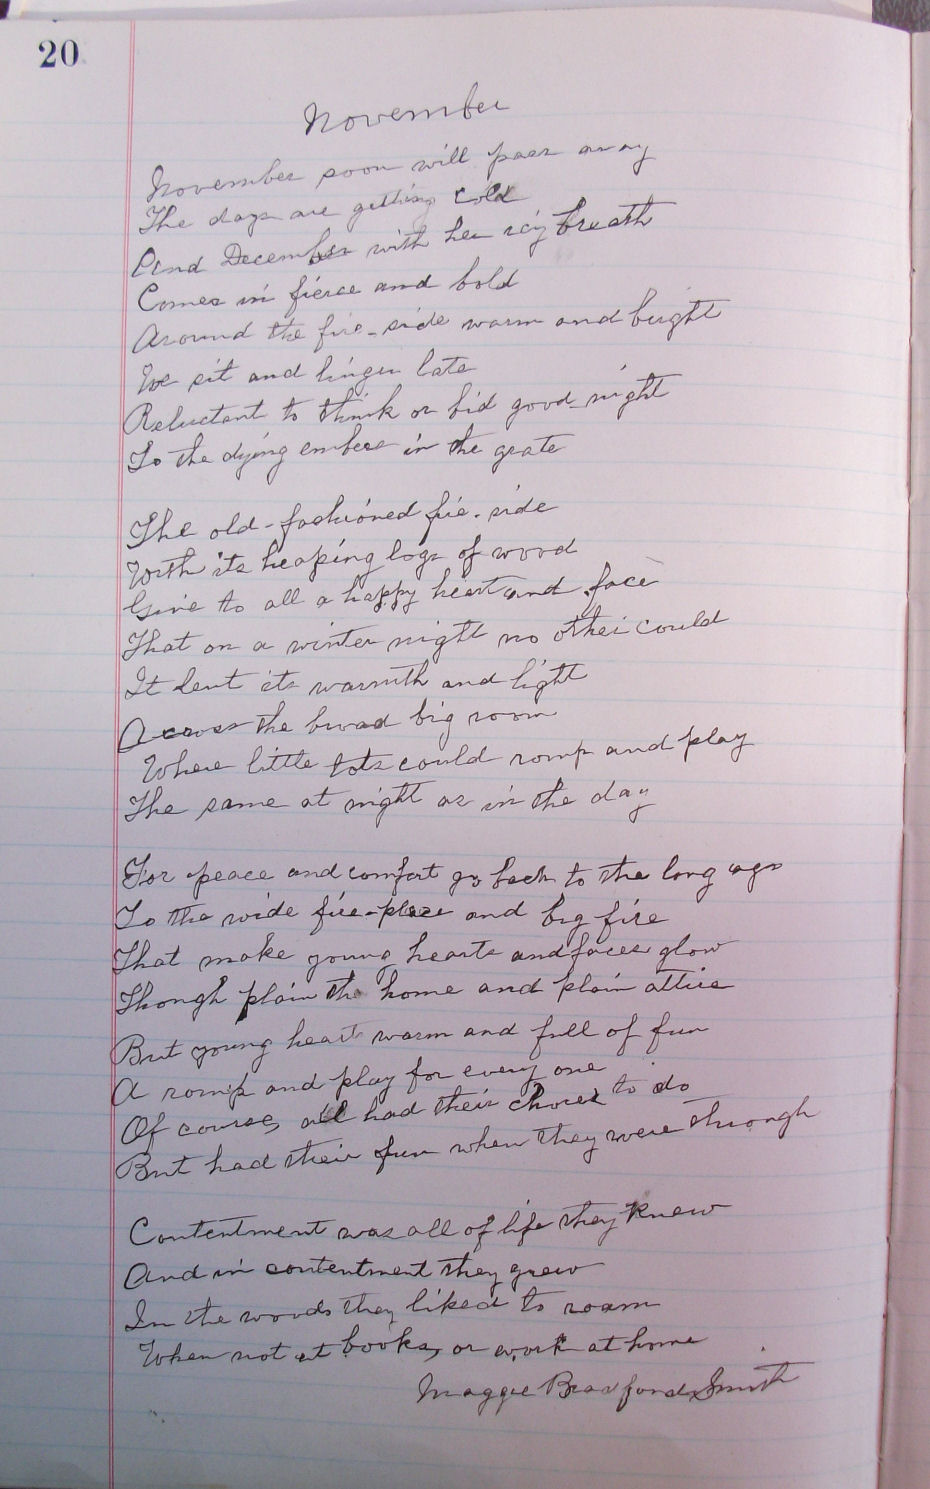 20
November
November soon will pass away
The days are getting cold
And December with her icy breath
Comes in fierce and bold
Around the fire-side warm and bright
We sit and linger late
Reluctant to think or bid good-night
To the dying embers in the grate
The old-fashioned fire-side
With its heaping logs of wood
Give to all a happy heart and face
That on a winter night no other could
It lent its warmth and light
Across the broad big room
Where little tots could romp and play
The same at night as in the day
For peace and comfort go back to the long ago
To the wide fire-place and big fire
That make young hearts and faces glow
Though plain the home and plain attire
But young heart warm and full of fun
A romp and play for every one
Of course, all had their chores to do
But had their fun when they were through
Contentment was all of life they knew
And in contentment they grew
In the woods they liked to roam
When not at books, or work at home
Maggie Bradford Smith